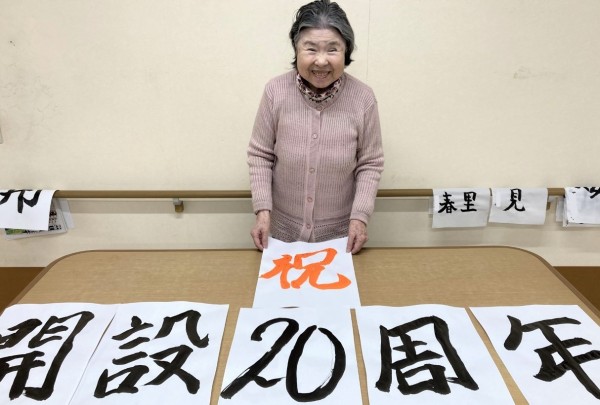 祝
春里 見
開設20周年